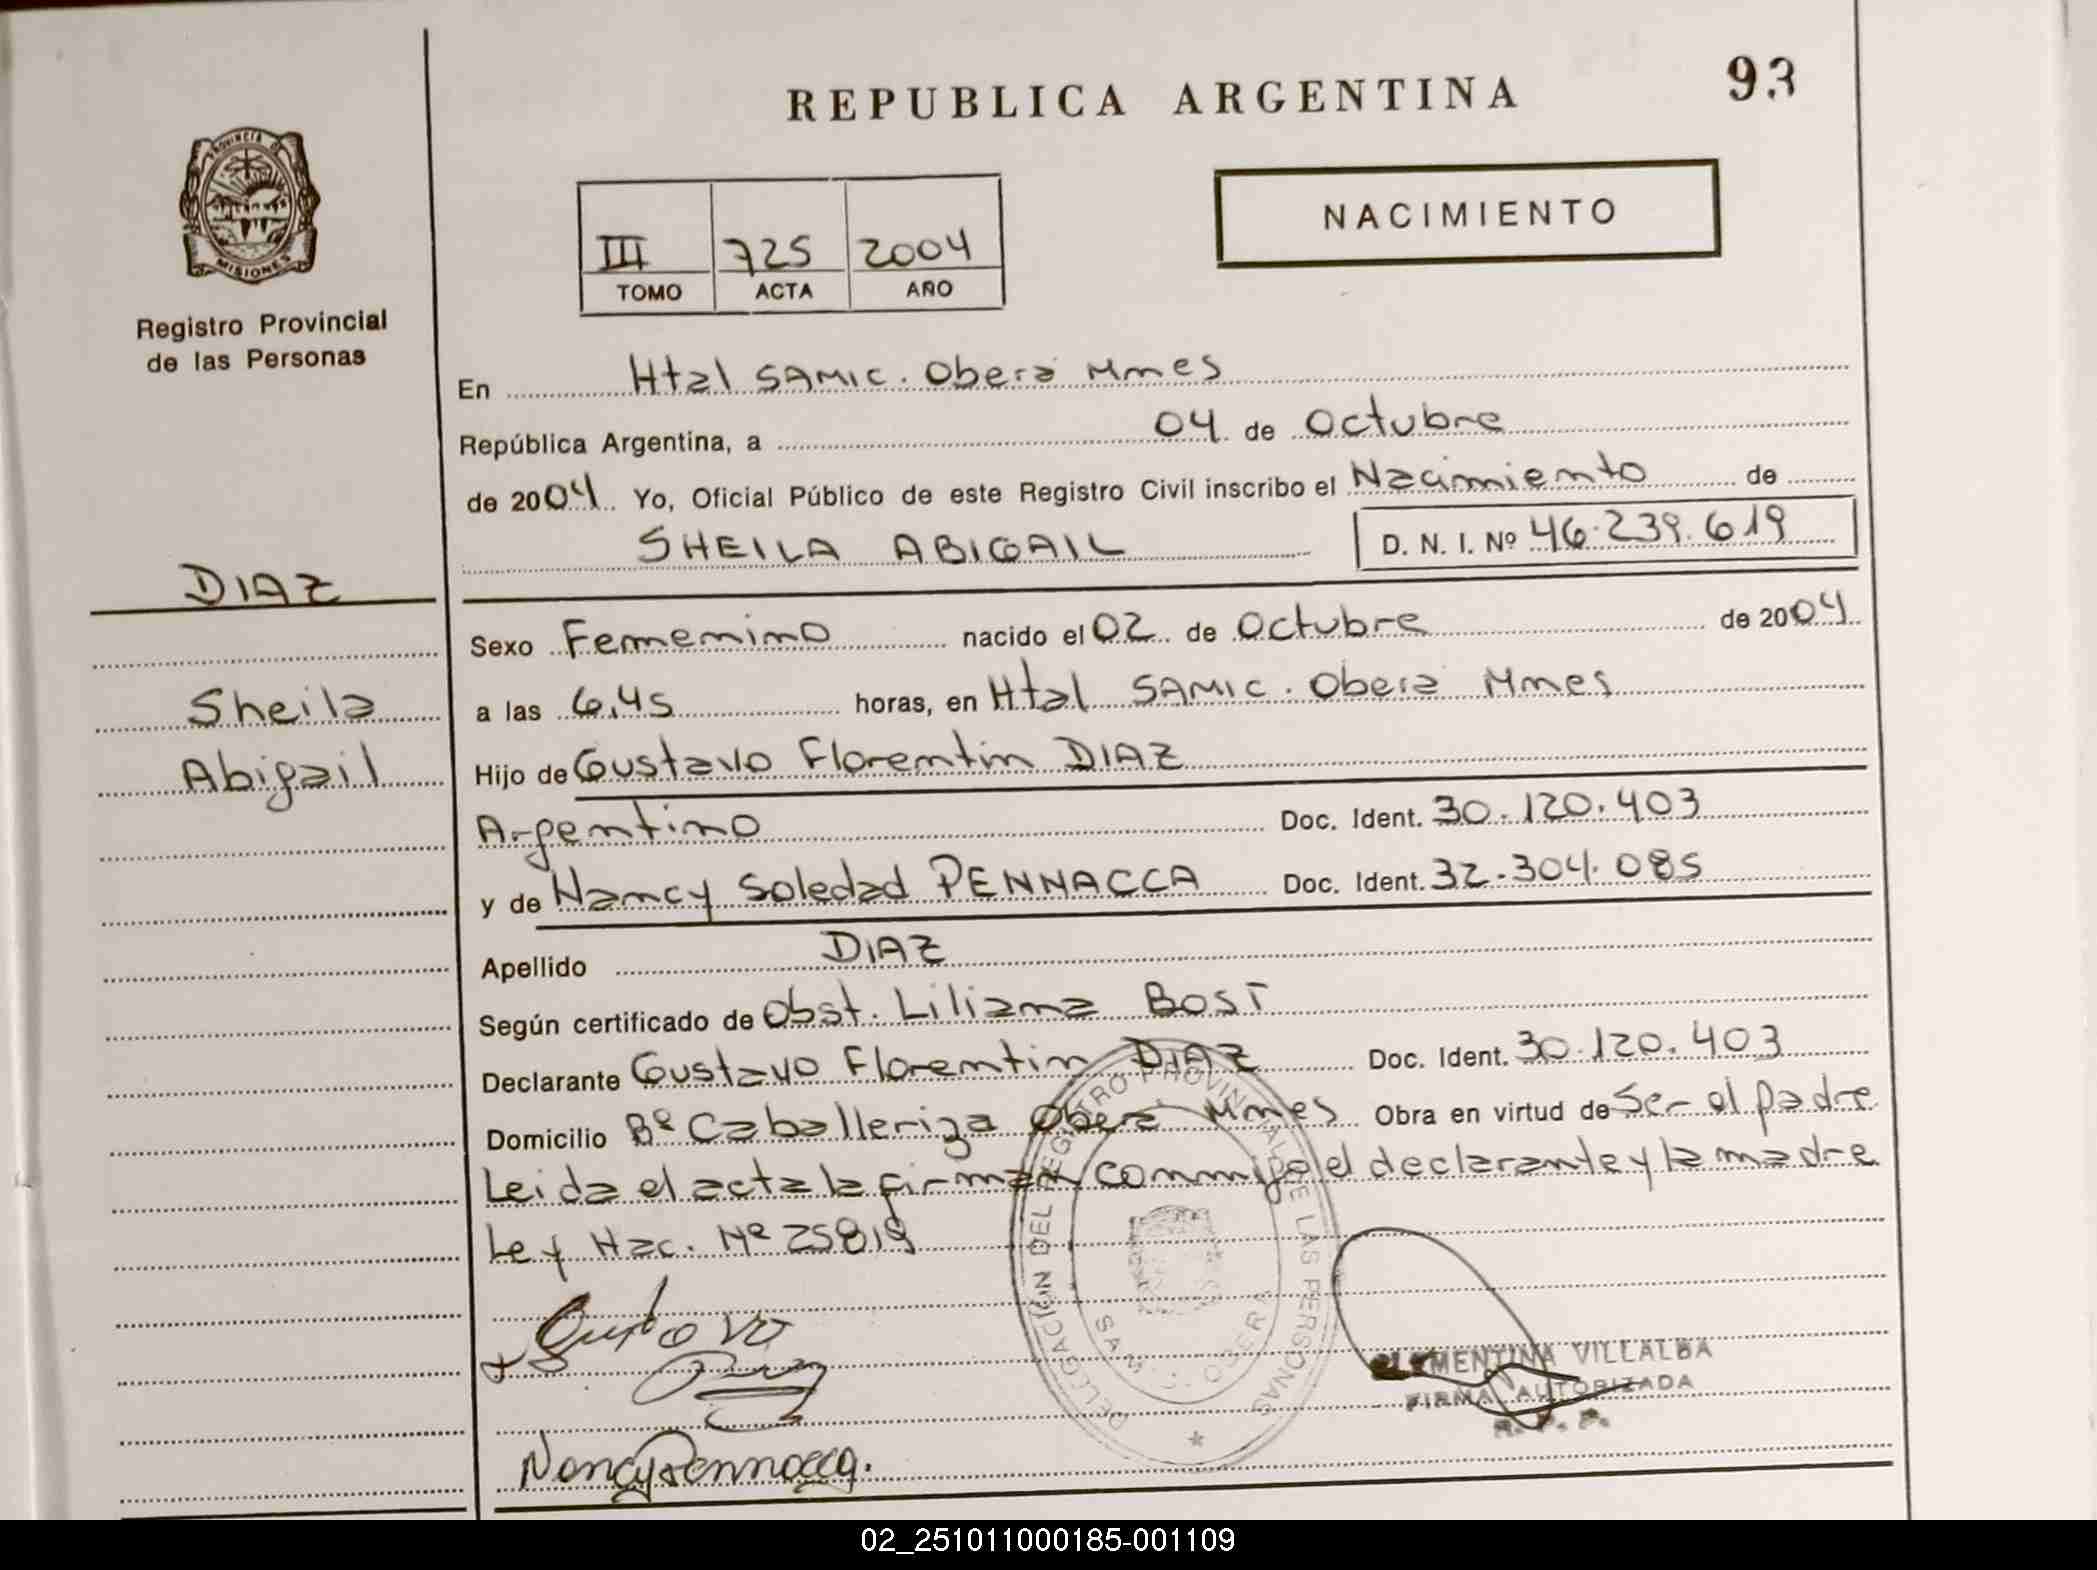 REPUBLICA ARGENTINA
93
PROVINCIA DE
MISIONES
Registro Provincial
de las Personas
III 725 2004
TOMO ACTA AÑO
NACIMIENTO
En Htal SAMIC. Oberá Mnes
República Argentina, a 04 de Octubre
de 2004 Yo, Oficial Público de este Registro Civil inscribo el Nacimiento de
SHEILA ABIGAIL D. N. I. Nº 46.239.619
DIAZ
Sheila
Abigail
Sexo Femenino nacido el 02 de Octubre de 2004
a las 6,45 horas, en Htal SAMIC. Oberá Mnes
Hijo de Gustavo Florentin DIAZ
Argentino Doc. Ident. 30.120.403
y de Nancy Soledad PENNACCA Doc. Ident. 32.304.085
Apellido DIAZ
Según certificado de Obst. Liliana BOST
Declarante Gustavo Florentin DIAZ Doc. Ident. 30.120.403
Domicilio Bº Caballeriza Oberá Mnes Obra en virtud de Ser el padre
Leida el acta la firman conmigo el declarante y la madre
Ley Nac. Nº 25819
DELEGACIÓN DEL REGISTRO PROVINCIAL DE LAS PERSONAS
Gustavo
Nancy Pennacca.
CLEMENTINA VILLALBA
FIRMA AUTORIZADA
R. P. P.
02_251011000185-001109